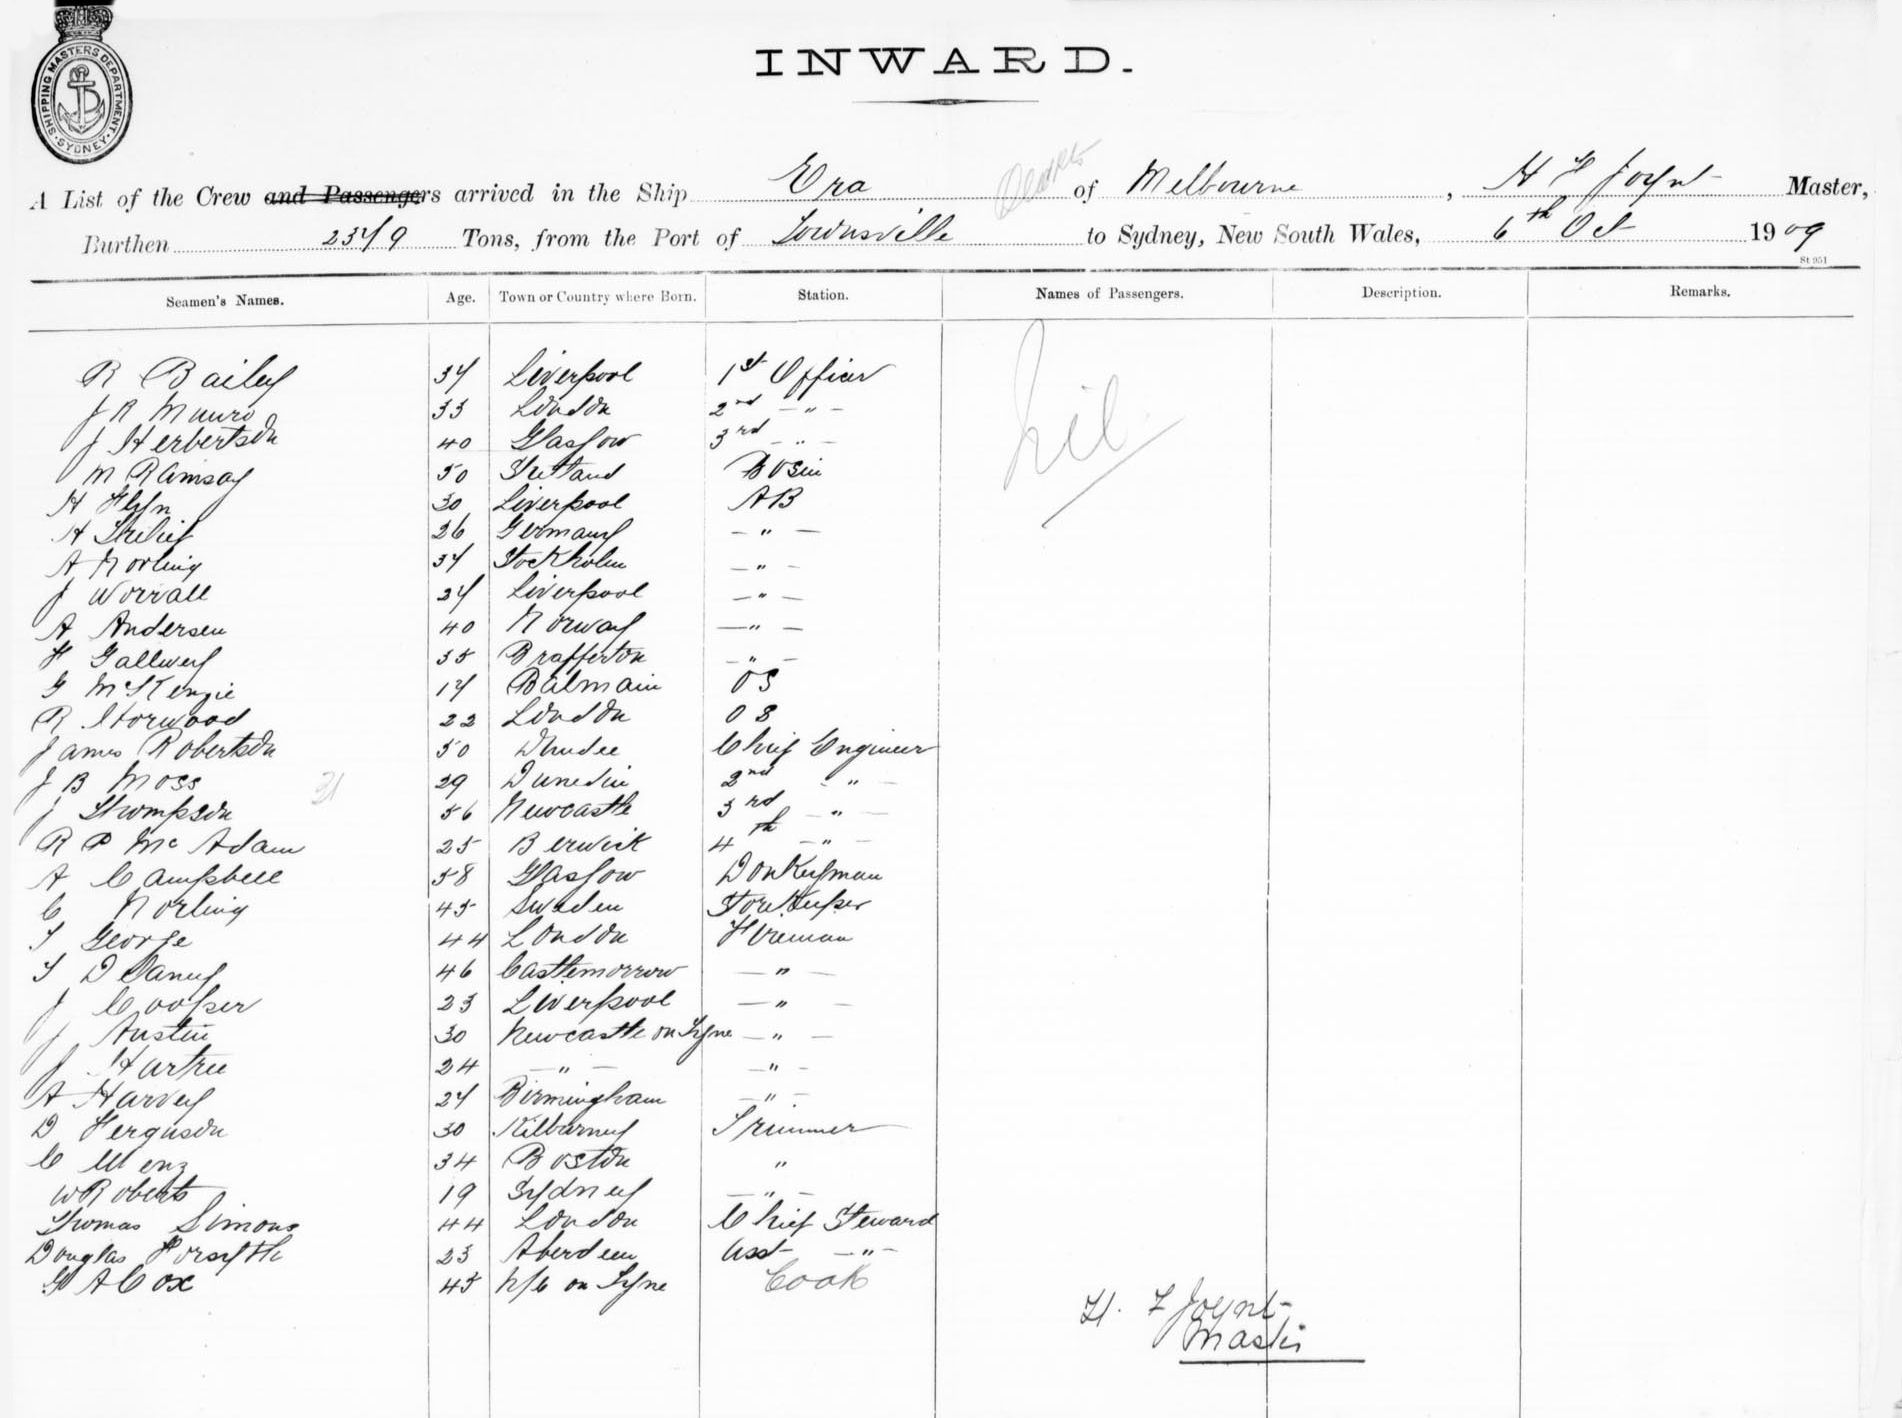 SHIPPING MASTERS DEPARTMENT. SYDNEY
INWARD.
A List of the Crew and Passengers arrived in the Ship Era of Melbourne, H F Joynt Master,
Burthen 2379 Tons, from the Port of Townsville to Sydney, New South Wales, 6th Oct 1909
St 951
Seamen's Names. Age. Town or Country where Born. Station. Names of Passengers. Description. Remarks.
nil
R Bailey 37 Liverpool 1st Officer
J R Munro 33 London 2nd – " –
J Herbertson 40 Glasgow 3rd – " –
M Ramsay 50 Shetland Bosin
H Flyn 30 Liverpool AB
H 26 Germany – " –
A Norling 37 Stockholm – " –
J Worrall 27 Liverpool – " –
A Andersen 40 Norway – " –
F Gallwey 35 Brafferton – " –
G McKenzie 17 Balmain OS
R Horwood 22 London OS
James Robertson 50 Dundee Chief Engineer
J B Moss 29 Dunedin 2nd " –
31
J Thompson 56 Newcastle 3rd – " –
R P McAdam 25 Berwick 4th – " –
A Campbell 58 Glasgow Donkeyman
C Norling 45 Sweden Storekeeper
T George 44 London Fireman
T Delaney 46 Castlemorrow – " –
J Cooper 23 Liverpool – " –
J Austin 30 Newcastle on Tyne – " –
J Hartree 24 – " – – " –
A Harvey 27 Birmingham – " –
D Ferguson 30 Kilbarney Trimmer
C Menz 34 Boston "
W Roberts 19 Sydney – " –
Thomas Simons 44 London Chief Steward
Douglas Forsyth 23 Aberdeen Asst – " –
G A Cox 45 N/C on Tyne Cook
H. F Joynt
Master